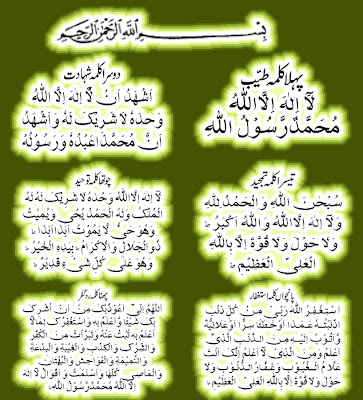 بِسْمِ اللهِ الرَّحْمٰنِ الرَّحِيْمِ
پہلا کلمہ طیّب
لَآ اِلٰهَ اِلَّا اللهُ
مُحَمَّدٌ رَّسُوْلُ اللهِ
دوسرا کلمہ شہادت
اَشْهَدُ اَنْ لَّا اِلٰهَ اِلَّا اللهُ
وَحْدَهٗ لَا شَرِيْكَ لَهٗ وَاَشْهَدُ
اَنَّ مُحَمَّدًا عَبْدُهٗ وَرَسُوْلُهٗ
تیسرا کلمہ تمجید
سُبْحٰنَ اللهِ وَالْحَمْدُ لِلّٰهِ
وَلَا اِلٰهَ اِلَّا اللهُ وَاللهُ اَكْبَرُ ؕ
وَلَا حَوْلَ وَلَا قُوَّةَ اِلَّا بِاللهِ
الْعَلِيِّ الْعَظِيْمِ ؕ
چوتھا کلمہ توحید
لَا اِلٰهَ اِلَّا اللهُ وَحْدَهٗ لَا شَرِيْكَ لَهٗ لَهُ
الْمُلْكُ وَلَهُ الْحَمْدُ يُحْيٖ وَيُمِيْتُ
وَهُوَ حَيٌّ لَّا يَمُوْتُ اَبَدًا اَبَدًا ؕ
ذُو الْجَلَالِ وَالْاِكْرَامِ ؕ بِيَدِهِ الْخَيْرُ ؕ
وَهُوَ عَلٰى كُلِّ شَيْءٍ قَدِيْرٌ ؕ
پانچواں کلمہ استغفار
اَسْتَغْفِرُ اللهَ رَبِّيْ مِنْ كُلِّ ذَنْبٍ
اَذْنَبْتُهٗ عَمَدًا اَوْ خَطَأً سِرًّا اَوْ عَلَانِيَةً
وَّاَتُوْبُ اِلَيْهِ مِنَ الذَّنْبِ الَّذِيْ
اَعْلَمُ وَمِنَ الَّذِيْ لَا اَعْلَمُ اِنَّكَ اَنْتَ
عَلَّامُ الْغُيُوْبِ وَغَفَّارُ الذُّنُوْبِ وَلَا
حَوْلَ وَلَا قُوَّةَ اِلَّا بِاللهِ الْعَلِيِّ الْعَظِيْمِ ؕ
چھٹا کلمہ رد کفر
اَللّٰهُمَّ اِنِّيْ اَعُوْذُ بِكَ مِنْ اَنْ اُشْرِكَ
بِكَ شَيْئًا وَّاَعْلَمُ بِهٖ وَاَسْتَغْفِرُكَ لِمَا لَا
اَعْلَمُ بِهٖ تُبْتُ عَنْهُ وَتَبَرَّأْتُ مِنَ الْكُفْرِ
وَالشِّرْكِ وَالْكِذْبِ وَالْغِيْبَةِ وَالْبِدْعَةِ
وَالنَّمِيْمَةِ وَالْفَوَاحِشِ وَالْبُهْتَانِ
وَالْمَعَاصِيْ كُلِّهَا وَاَسْلَمْتُ وَاَقُوْلُ لَا اِلٰهَ
اِلَّا اللهُ مُحَمَّدٌ رَّسُوْلُ اللهِ